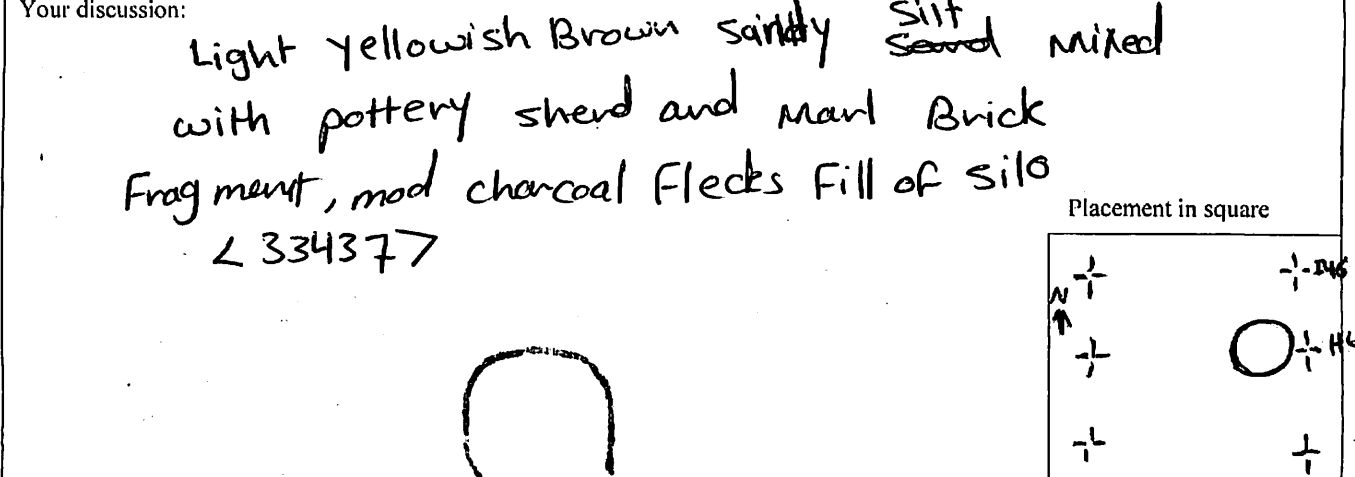 Your discussion:
Light yellowish Brown sandy silt mixed
with pottery sherd and marl Brick
Fragment, mod charcoal Flecks Fill of silo
<33437>
Placement in square
N